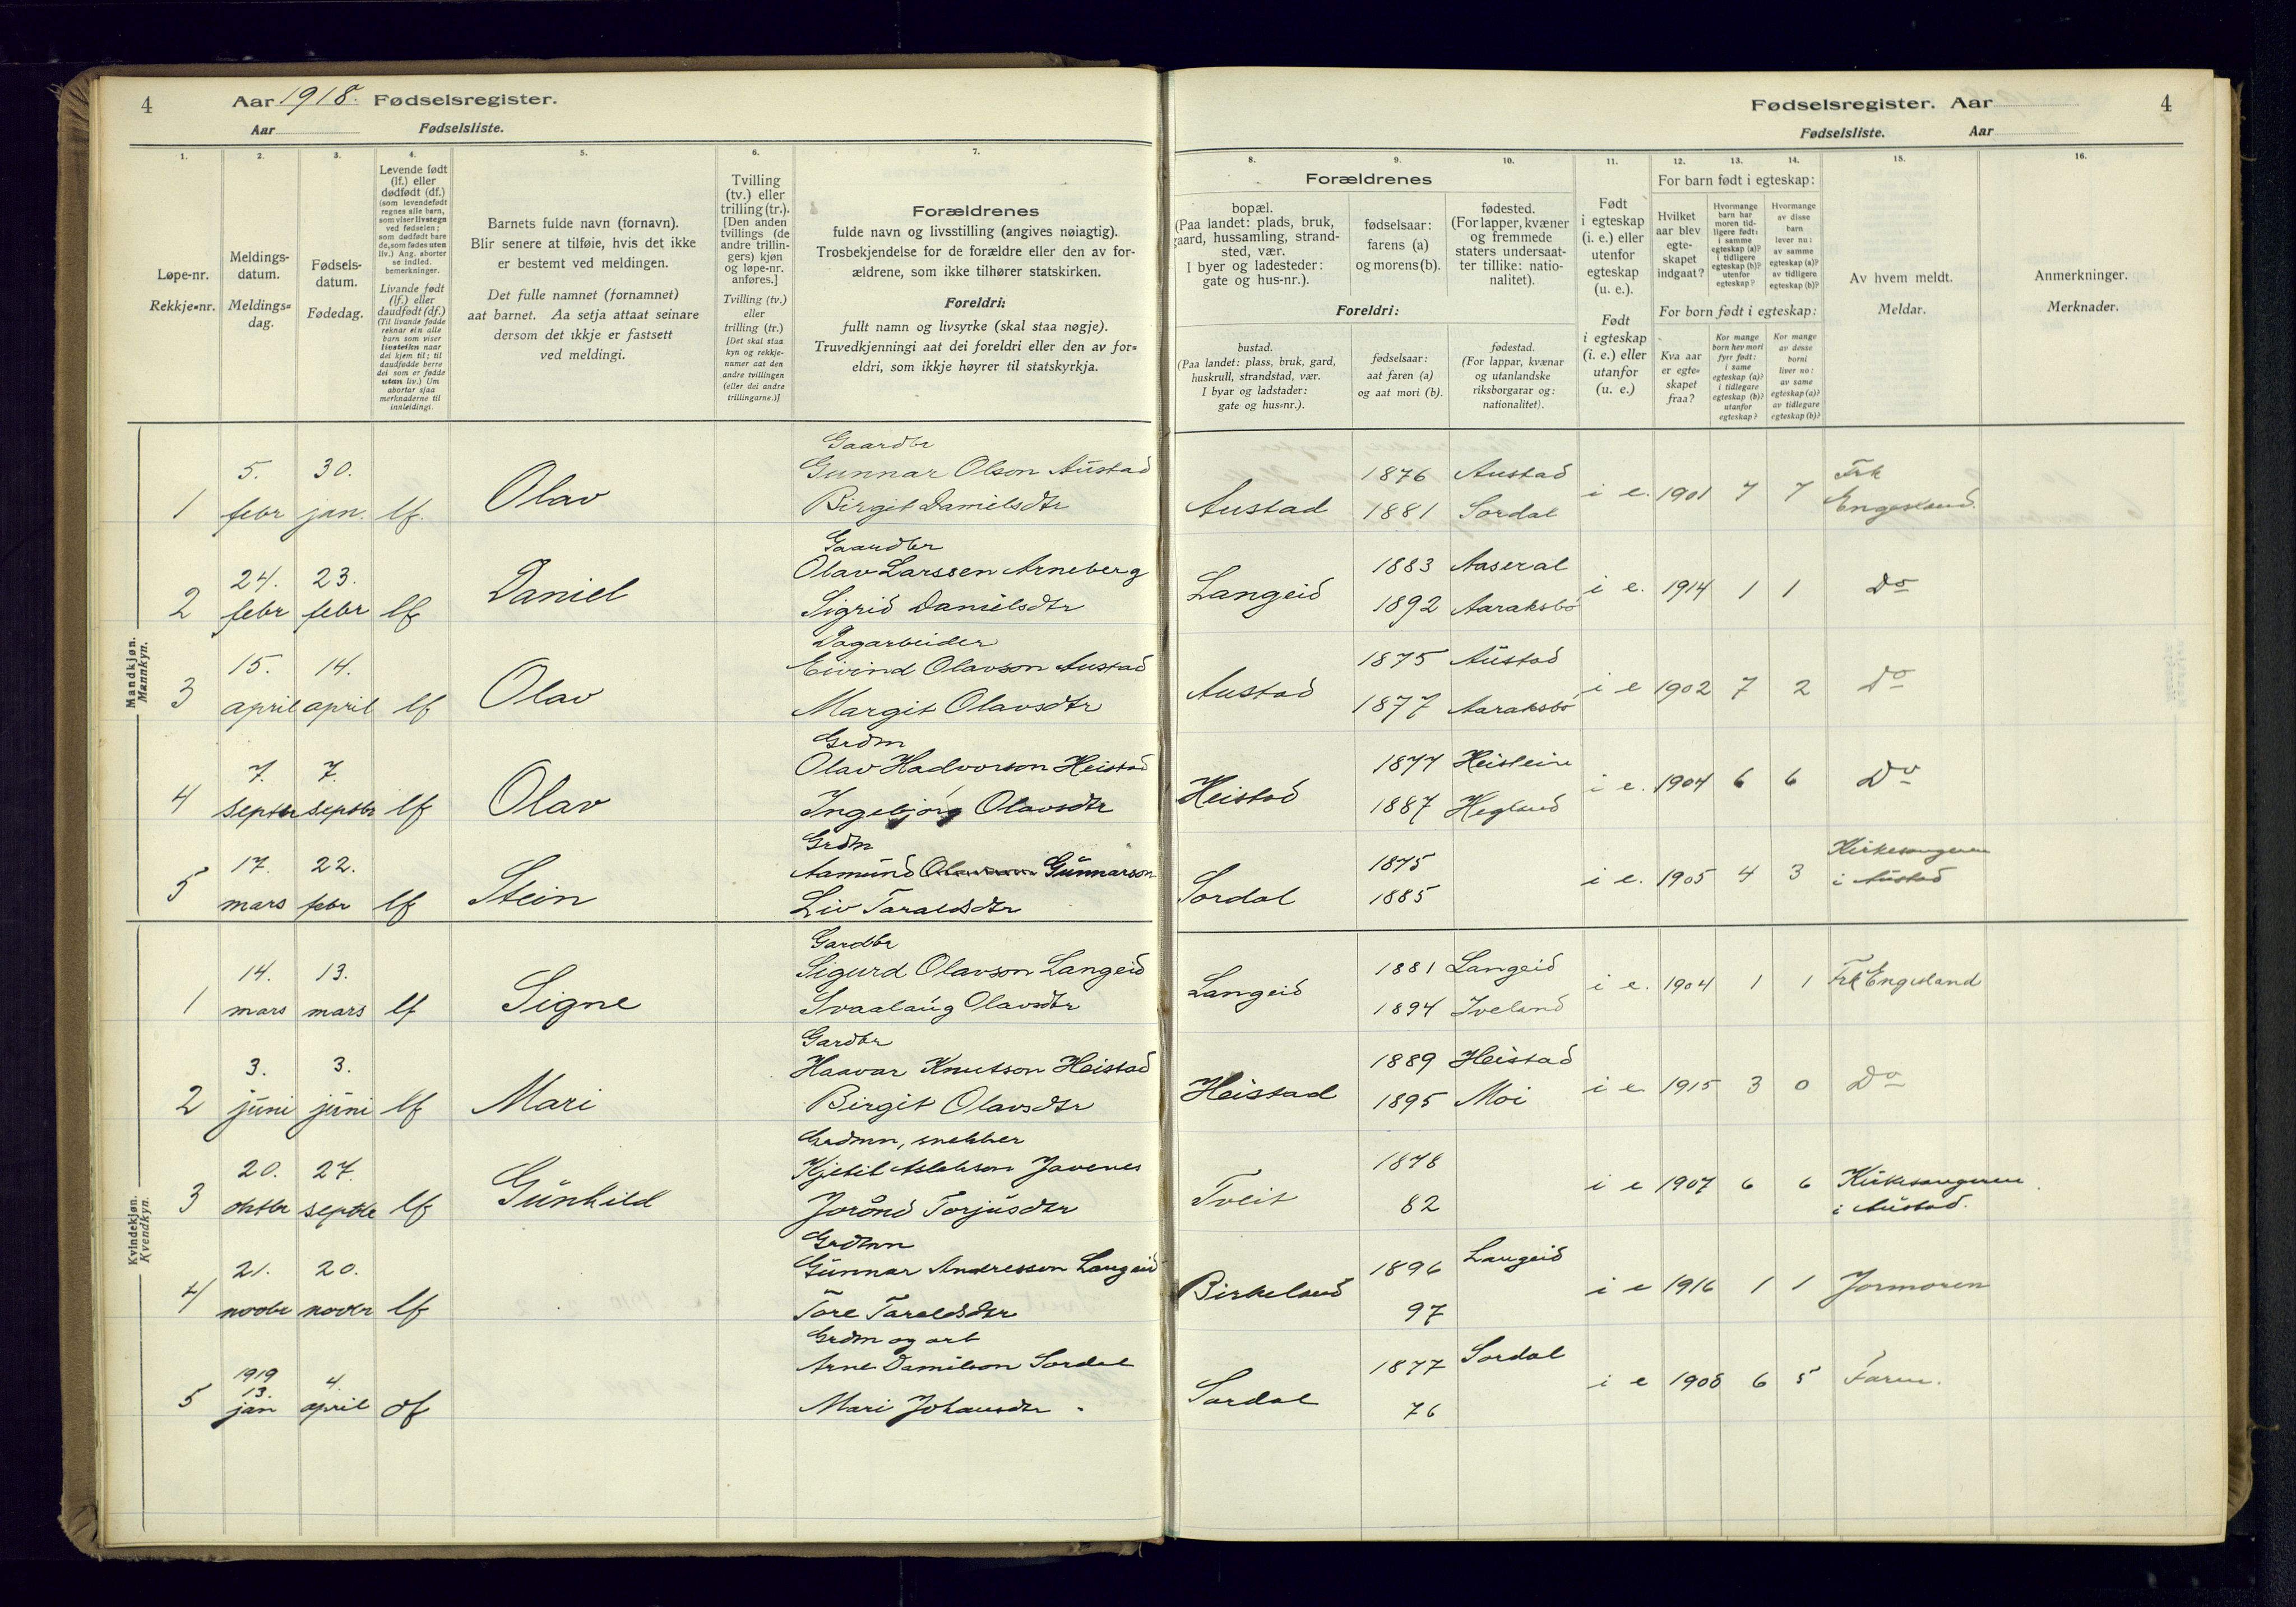 4 Aar 1918. Fødselsregister.
Aar Fødselsliste.
1. 2. 3. 4. 5. 6. 7.
Løpe-nr.
Rekkje-nr.
Meldings-
datum.
Meldings-
dag.
Fødsels-
datum.
Fødedag.
Levende født
(lf.) eller
dødfødt (df.)
(som levendefødt
regnes alle barn,
som viser livstegn
ved fødselen;
som dødfødt bare
de, som fødes uten
liv.) Ang. aborter
se indled.
bemerkninger.
Livande født
(lf.) eller
daudfødt (df.)
(Til livande fødde
reknar ein alle
barn som viser
livsteikn naar
dei kjem til; til
daudfødde berre
dei som er fødde
utan liv.) Um
abortar sjaa
merknaderne til
innleidingi.
Barnets fulde navn (fornavn).
Blir senere at tilføie, hvis det ikke
er bestemt ved meldingen.
Det fulle namnet (fornamnet)
aat barnet. Aa setja attaat seinare
dersom det ikkje er fastsett
ved meldingi.
Tvilling
(tv.) eller
trilling (tr.).
[Den anden
tvillings (de
andre trillin-
gers) kjøn
og løpe-nr.
anføres.]
Tvilling (tv.)
eller
trilling (tr.)
[Det skal staa
kyn og rekkje-
numer aat den
andre tvillingen
(eller dei andre
trillingarne.)]
Forældrenes
fulde navn og livsstilling (angives nøiagtig).
Trosbekjendelse for de forældre eller den av for-
ældrene, som ikke tilhører statskirken.
Foreldri:
fullt namn og livsyrke (skal staa nøgje).
Truvedkjenningi aat dei foreldri eller den av for-
eldri, som ikkje høyrer til statskyrkja.
Mandkjøn.
Mannkyn.
Gaardbr
5. 30. Gunnar Olson Austad
1 febr jan. lf. Olav Birgit Danielsdtr
Gaardbr
24. 23. Olav Larssen Arneberg
2 febr febr lf Daniel Sigrid Danielsdtr
Dagarbeider
15. 14. Eivind Olavson Austad
3 april april lf Olav Margit Olavsdtr
Grdm
7. 7. Olav Hadvorson Heistad
4 septbr septbr lf Olav Ingebjörg Olavsdtr
Grdm
17. 22. Aamund Olavson Gunnarson
5 mars febr lf Stein Liv Taraldsdtr
Kvindekjøn.
Kvendkyn.
Gardbr
14. 13. Sigurd Olavson Langeid
1 mars mars lf Signe Svaalaug Olavsdtr
Gardbr
3. 3. Haavar Knutson Heistad
2 juni juni lf Mari Birgit Olavsdtr
Grdmn, snekker
20. 27. Kjetil Aslakson Javenes
3 oktbr septbr lf Gunhild Jorånd Torjusdtr
Grdmn
21. 20. Gunnar Andresson Langeid
4 novbr novbr lf Tore Taraldsdtr
Grdm og arb
1919
13. 4. Arne Danielson Sordal
5 jan april df Mari Johansdtr
Fødselsregister. Aar 4
Fødselsliste. Aar
8. 9. 10. 11. 12. 13. 14. 15. 16.
Forældrenes
bopæl.
(Paa landet: plads, bruk,
gaard, hussamling, strand-
sted, vær.
I byer og ladesteder:
gate og hus-nr.).
fødselsaar:
farens (a)
og morens (b).
fødested.
(For lapper, kvæner
og fremmede
staters undersaat-
ter tillike: natio-
nalitet).
Foreldri:
bustad.
(Paa landet: plass, bruk, gard,
huskrull, strandstad, vær.
I byar og ladstader:
gate og hus-nr.).
fødselsaar:
aat faren (a)
og aat mori (b).
fødestad.
(For lappar, kvænar
og utanlandske
riksborgarar og:
nationalitet).
Født
i egteskap
(i. e.) eller
utenfor
egteskap
(u. e.).
Født
i egteskap
(i. e.) eller
utanfor
(u. e.)
For barn født i egteskap:
Hvilket
aar blev
egte-
skapet
indgaat?
Hvormange
barn har
moren tid-
ligere født:
i samme
egteskap (a)?
i tidligere
egteskap (b)?
utenfor
egteskap?
Hvormange
av disse
barn
lever nu:
av samme
egteskap (a)?
av tidligere
egteskap (b)?
For born født i egteskap:
Kva aar
er egte-
skapet
fraa?
Kor mange
born hev mori
fyrr født:
i same
egteskap (a)?
i tidlegare
egteskap (b)?
utanfor
egteskap?
Kor mange
av desse
borni
liver no:
av same
egteskap (a)?
av tidlegare
egteskap (b)?
Av hvem meldt.
Meldar.
Anmerkninger.
Merknader.
1876 Austad Frk
Austad 1881 Sordal i e. 1901 7 7 Engesland.
1883 Aaseral
Langeid 1892 Aaraksbö i e. 1914 1 1 Do
1875 Austad
Austad 1877 Aaraksbö i e 1902 7 2 Do
1877 Heistein
Heistad 1887 Hegland i e. 1904 6 6 Do
1875 Kirkesangeren
Sordal 1885 i e. 1905 4 3 i Austad
1881 Langeid
Langeid 1894 Iveland i e. 1904 1 1 Frk Engesland
1889 Heistad
Heistad 1895 Moi i e 1915 3 0 Do
1878 Kirkesangeren
Tveit 82 i e 1907 6 6 i Austad.
1896 Langeid
Birkeland 97 i e 1916 1 1 Jormoren
1877 Sordal
Sordal 76 i e 1908 6 5 Faren.